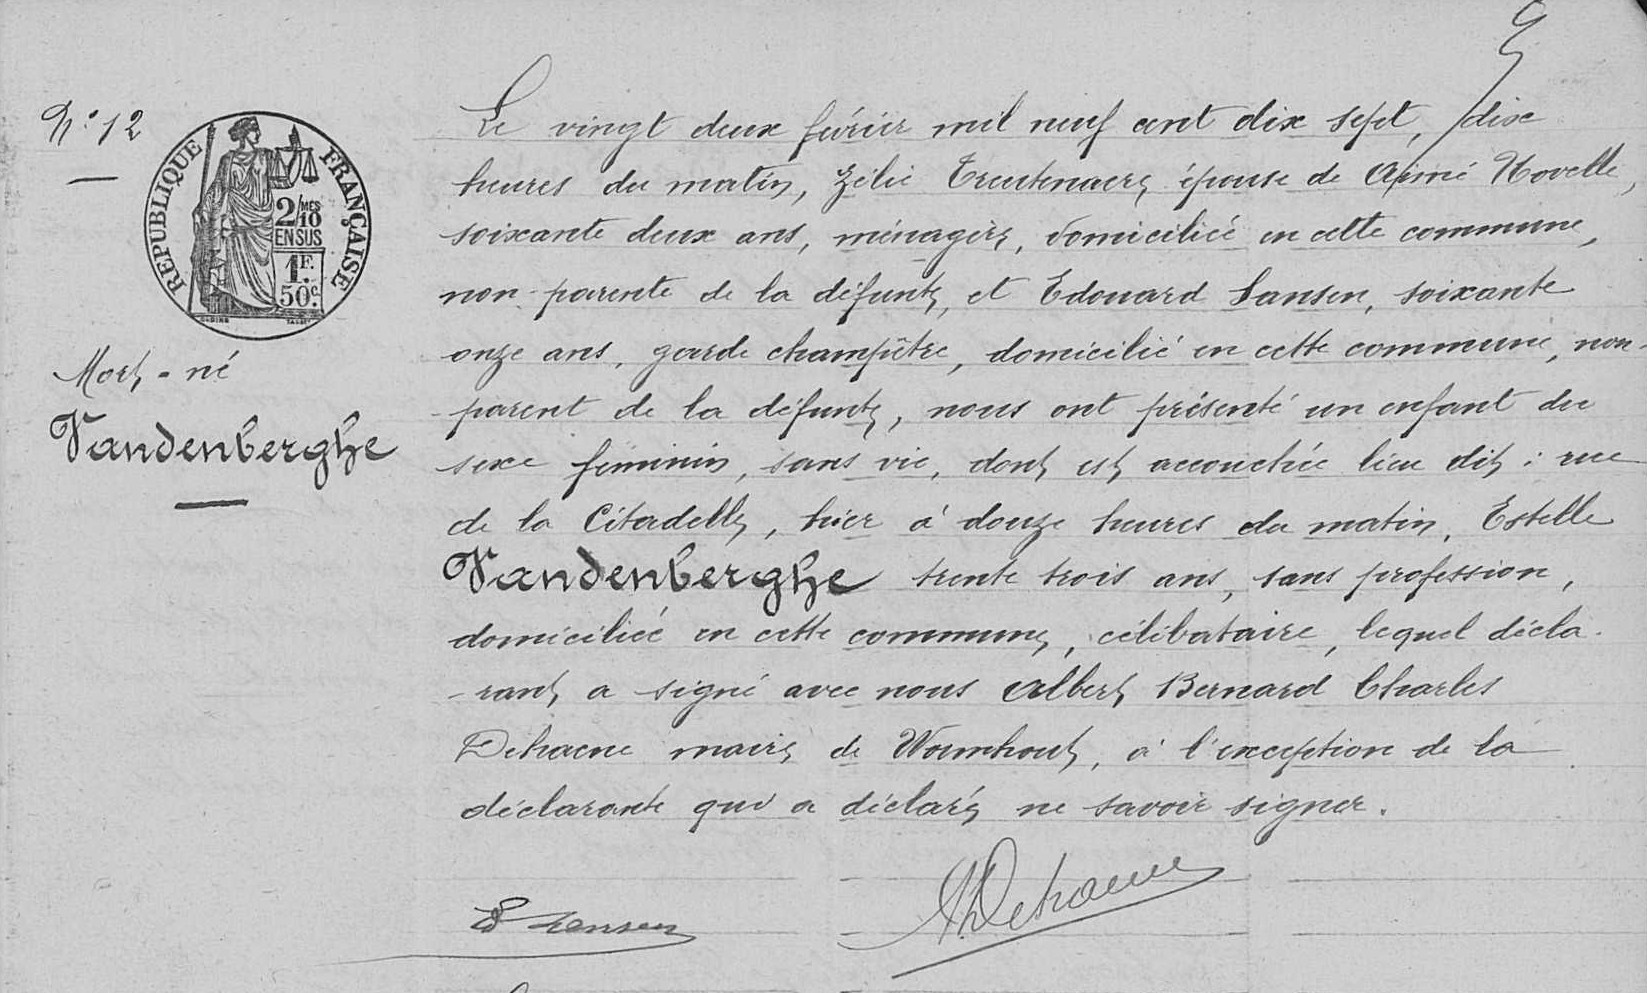 N° 12
RÉPUBLIQUE FRANÇAISE
2/10 MES
EN SUS
1F.
50c.
Mort-né
Vandenberghe
Le vingt deux février mil neuf cent dix sept, dix
heures du matin, Zélie Treutenaere, épouse de Aimé Hovelle,
soixante deux ans, ménagère, domiciliée en cette commune,
non-parente de la défunte, et Edouard Sansen, soixante
onze ans, garde champêtre, domicilié en cette commune, non-
parent de la défunte, nous ont présenté un enfant du
sexe féminin, sans vie, dont est accouchée lieu dit : rue
de la Citadelle, hier à douze heures du matin, Estelle
Vandenberghe trente trois ans, sans profession,
domiciliée en cette commune, célibataire, lequel décla-
-rant a signé avec nous Albert Bernard Charles
Dehaene maire de Wormhout, à l'exception de la
déclarante qui a déclaré ne savoir signer.
Sansen
A. Dehaene